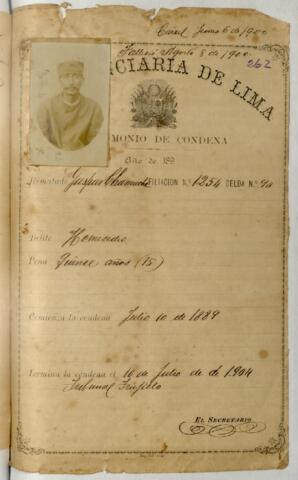 Junio 6 de 1900
Falleció Agosto 8 de 1900
262
CIARÍA DE LIMA
MONIO DE CONDENA
Año de 189
Rematado Gaspar FILIACION N.º 1254 CELDA N.º 94
Delito Homicidio
Pena Quince años (15)
Comienza la condena Julio 10 de 1889
Termina la condena el 10 de Julio de de 1904
Tribunal Trujillo
EL SECRETARIO